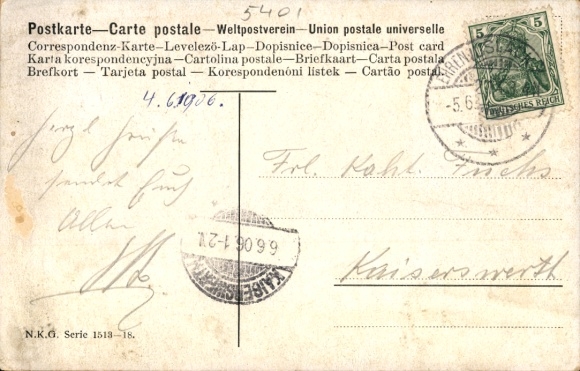 5401
Postkarte—Carte postale—Weltpostverein—Union postale universelle
Correspondenz-Karte—Levelezö-Lap—Dopisnice—Dopisnica—Post card
Karta korespondencyjna—Cartolina postale—Briefkaart—Carta postala
Brefkort — Tarjeta postal — Korespondenóni listek — Cartão postal.
5 5
DEUTSCHES REICH
-5.6.
4.6.1906.
Herzl Grüsse
sendet Euch
Allen
Frl. Kath. Fuchs
Kaiserswerth
6.6.06.1-2N.
KAISERSWERTH
N.K.G. Serie 1513—18.